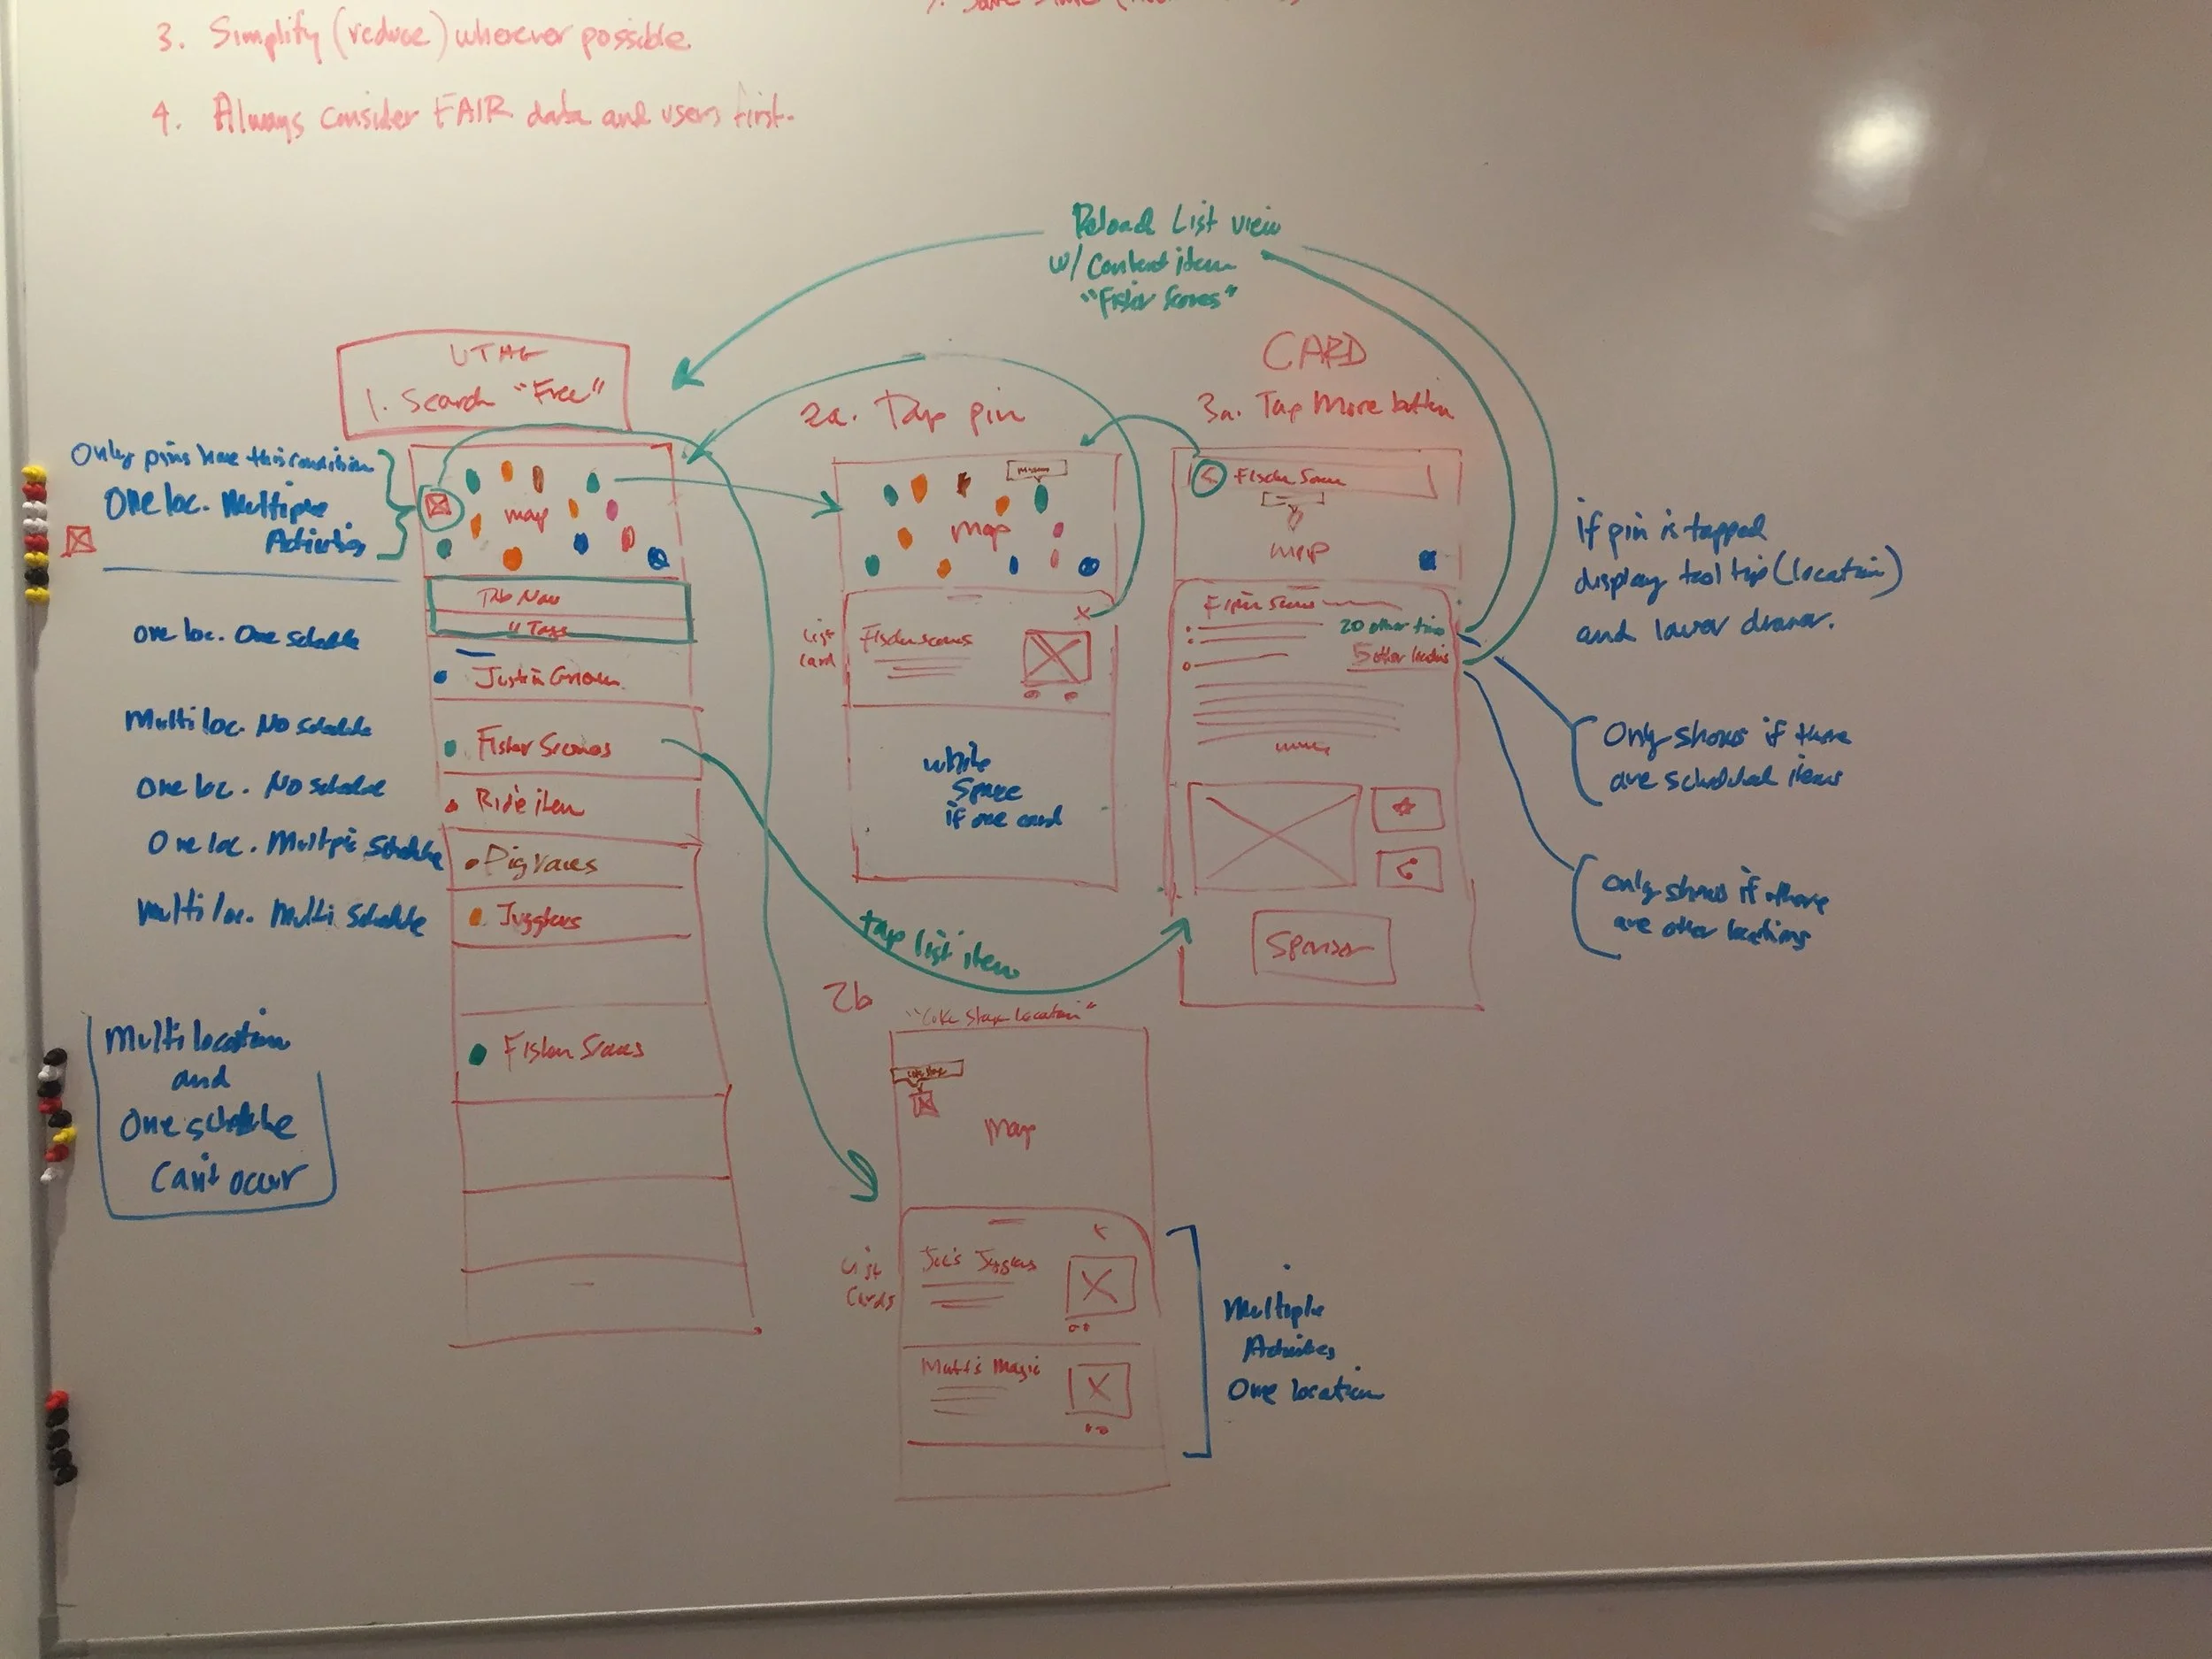 3. Simplify (reduce) wherever possible.
4. Always consider FAIR data and users first.
Reload List view
w/ Content item
"Fisher Scones"
UTAG
1. Search "Free"
2a. Tap pin
CARD
3a. Tap More button
Only pins have this condition
One loc. Multiple
Activities
map
map
Museum
Fischer Scones
map
Tab Nav
4 Tags
one loc. One schedule
Justin Groan
Multi loc. No schedule
Fisher Scones
one loc. No schedule
Ride item
One loc. Multiple Schedule
Pig races
Multi loc. Multi Schedule
Jugglers
Fisher Scones
Multi location
and
One schedule
Can't occur
List
Card
X
Fischer scones
white
Space
if one card
Fisher Scones
20 other times
5 other locations
more
Sponsor
tap list item
if pin is tapped
display tool tip (location)
and lower drawer.
Only shows if there
are scheduled items
only shows if there
are other locations
2b
"Coke Stage Location"
Coke Stage
map
List
Cards
x
Joe's Jugglers
Matt's Magic
Multiple
Activities
One location